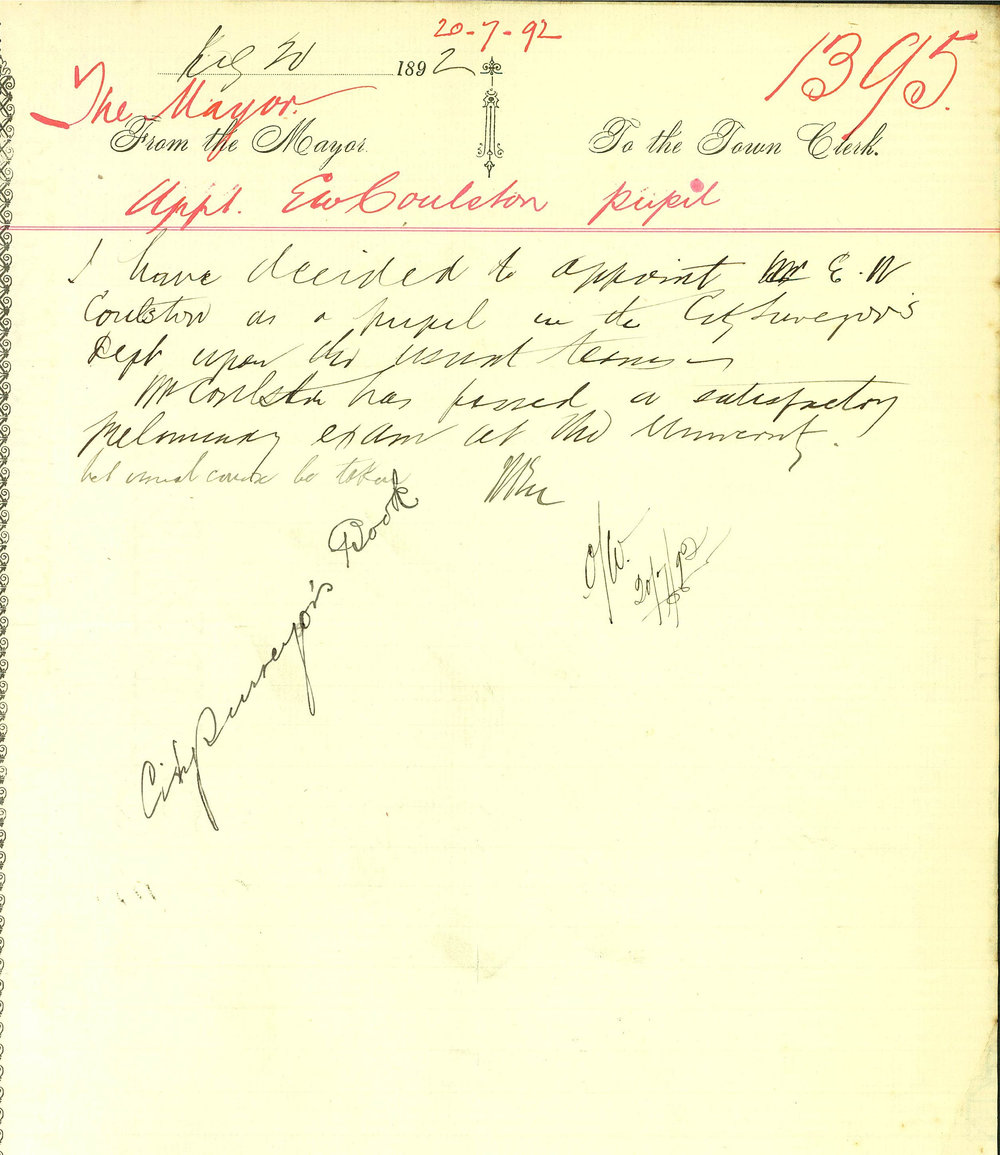 20-7-92
1395.
July 20 1892
The Mayor.
From the Mayor. To the Town Clerk.
Appt. EW Coulston pupil
I have decided to appoint Mr E. W
Coulston as a pupil in the City Surveyors
Dept upon the usual terms
Mr Coulston has passed a satisfactory
prelominary exam at the University.
Let usual course be taken
O/W.
20/7/92
City Surveyor's Book